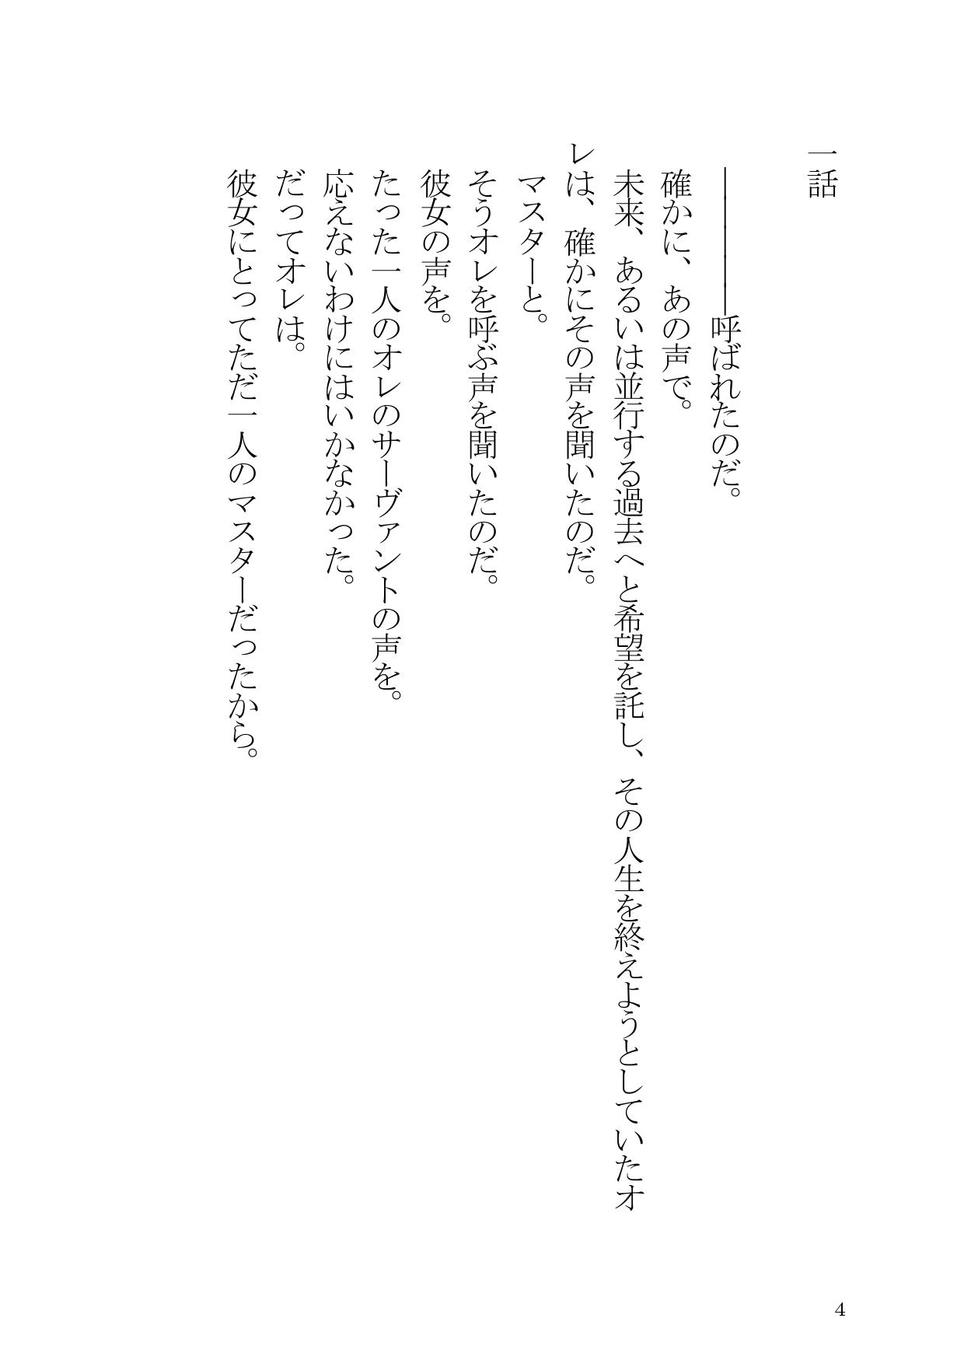 一話
―――――呼ばれたのだ。
確かに、あの声で。
未来、あるいは並行する過去へと希望を託し、その人生を終えようとしていたオ
レは、確かにその声を聞いたのだ。
マスターと。
そうオレを呼ぶ声を聞いたのだ。
彼女の声を。
たった一人のオレのサーヴァントの声を。
応えないわけにはいかなかった。
だってオレは。
彼女にとってただ一人のマスターだったから。
4